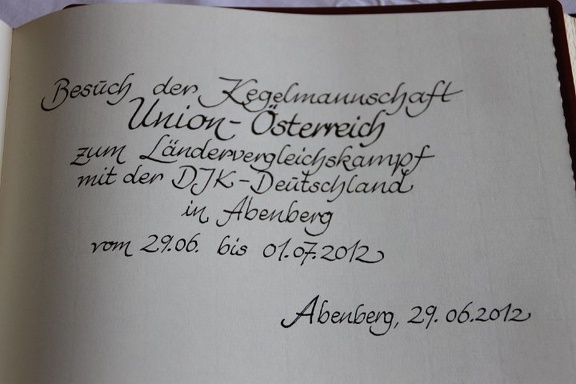 Besuch der Kegelmannschaft
Union-Österreich
zum Ländervergleichskampf
mit der DJK-Deutschland
in Abenberg
vom 29.06. bis 01.07.2012
Abenberg, 29.06.2012